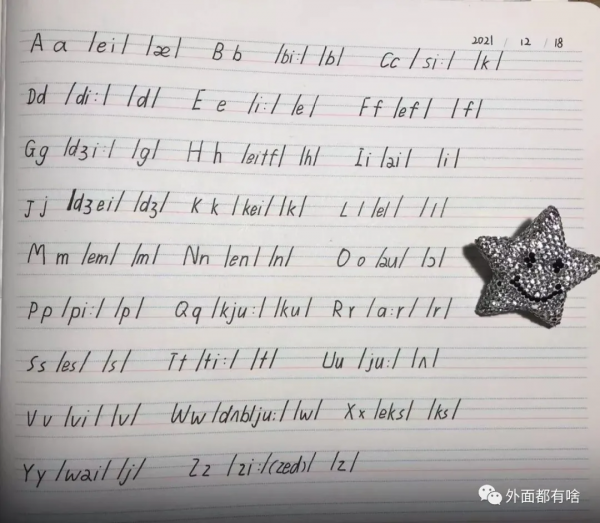 2021 / 12 / 18
A a /ei/ /æ/ B b /bi:/ /b/ Cc /si:/ /k/
Dd /di:/ /d/ E e /i:/ /e/ F f /ef/ /f/
Gg /dʒi:/ /g/ H h /eitʃ/ /h/ I i /ai/ /i/
J j /dʒei/ /dʒ/ K k /kei/ /k/ L l /el/ /l/
M m /em/ /m/ Nn /en/ /n/ O o /əu/ /ɔ/
Pp /pi:/ /p/ Qq /kju:/ /ku/ R r /a:r/ /r/
Ss /es/ /s/ Tt /ti:/ /t/ Uu /ju:/ /ʌ/
V v /vi/ /v/ Ww /dʌblju:/ /w/ Xx /eks/ /ks/
Yy /wai/ /j/ Zz /zi:/(zed) /z/
外面都有啥